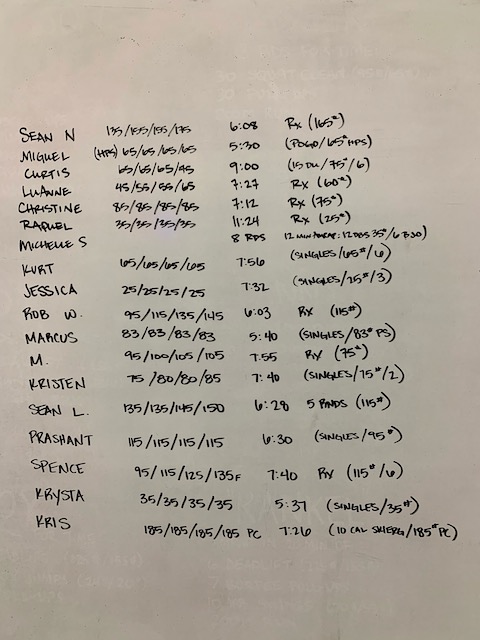 SEAN N 135/155/155/175 6:08 Rx (165#)
MIGUEL (HPS) 65/65/65/65 5:30 (POGO/65# HPS)
CURTIS 65/65/65/45 9:00 (15 DU/75#/6)
LUANNE 45/55/55/65 7:27 Rx (60#)
CHRISTINE 85/85/85/85 7:12 Rx (75#)
RAQUEL 35/35/35/35 11:24 Rx (25#)
MICHELLE S 8 RDS 12 MIN AMRAP: 12 DBS 35#/6
KURT 65/65/65/65 7:56 (SINGLES/65#/6)
JESSICA 25/25/25/25 7:32 (SINGLES/25#/3)
ROB W. 95/115/135/145 6:03 Rx (115#)
MARCUS 83/83/83/83 5:40 (SINGLES/83# PS)
M. 95/100/105/105 7:55 Rx (75#)
KRISTEN 75/80/80/85 7:40 (SINGLES/75#/2)
SEAN L. 135/135/145/150 6:28 5 RNDS (115#)
PRASHANT 115/115/115/115 6:30 (SINGLES/95#)
SPENCE 95/115/125/135F 7:40 Rx (115#/6)
KRYSTA 35/35/35/35 5:37 (SINGLES/35#)
KRIS 185/185/185/185 PC 7:26 (10 CAL SKIERG/185# PC)